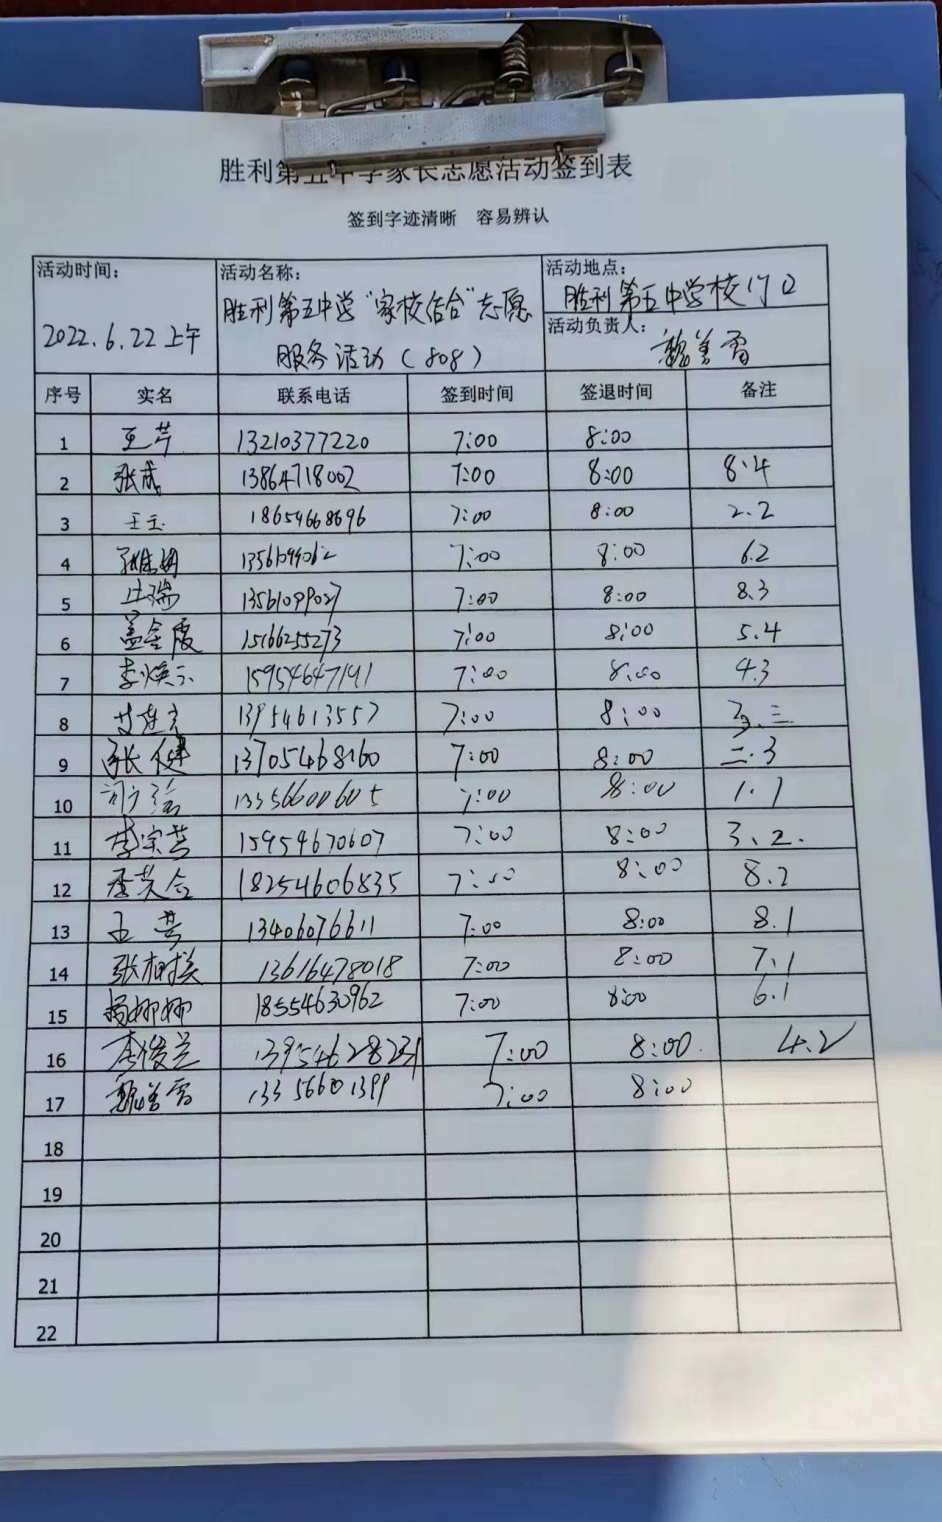 胜利第五中学家长志愿活动签到表
签到字迹清晰 容易辨认
活动时间： 活动名称： 活动地点：
胜利第五中学"家校结合"志愿 胜利第五中学校门口
2022.6.22上午 活动负责人：
服务活动（808） 魏美雷
序号 实名 联系电话 签到时间 签退时间 备注
1 王芹 13210377220 7:00 8:00
2 张成 13864718002 7:00 8:00 8.4
3 18654668696 7:00 8:00 2.2
4 7:00 8:00 6.2
5 13561099027 7:00 8:00 8.3
6 盖金霞 15166255273 7:00 8:00 5.4
7 李焕云 15954647191 7:00 8:00 4.3
8 13954613557 7:00 8:00
9 张健 13705468160 7:00 8:00 二.3
10 13356600605 7:00 8:00 1.1
11 李宗芸 15954670607 7:00 8:00 3.2.
12 18254606835 7:00 8:00 8.2
13 13406076611 7:00 8:00 8.1
14 张相美 13616478018 7:00 8:00 7.1
15 杨柳柳 18554630962 7:00 8:00 6.1
16 李俊兰 13954628231 7:00 8:00. 4.2
17 魏美雷 13356601399 7:00 8:00
18
19
20
21
22